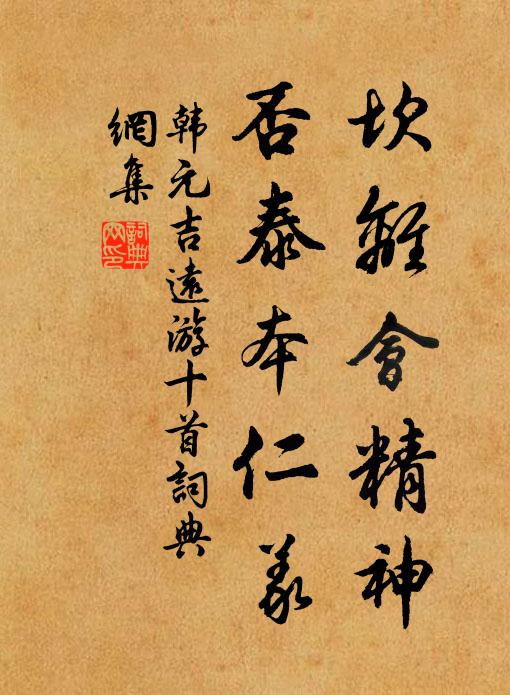 坎離會精神
否泰本仁義
韩元吉遠游十首詞典
網集
詞典
网印